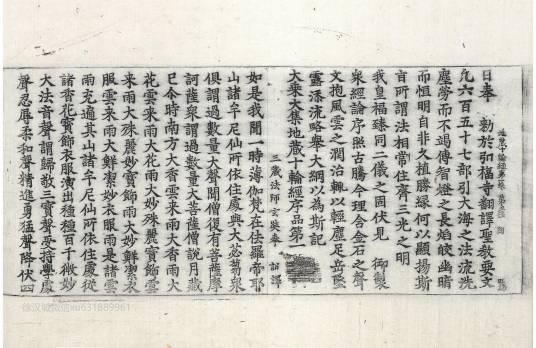 日奉　勑於弘福寺翻譯聖教要文
凢六百五十七部引大海之法流洗
塵勞而不竭傳智燈之長焰皎幽暗
而恒明自非久植勝緣何以顯揚斯
旨所謂法相常住齊三光之明
我皇福臻同二儀之固伏見　御製
衆經論序照古騰今理含金石之聲
文抱風雲之潤治輙以輕塵足岳墜
露添流略舉大綱以為斯記
大乘大集地藏十輪經序品第一
三藏法師玄奘奉　詔譯
如是我聞一時薄伽梵在佉羅帝耶
山諸牟尼仙所依住處與大苾芻衆
俱謂過數量大聲聞僧復有菩薩摩
訶薩衆謂過數量大菩薩僧說月藏
已今時南方大香雲來雨大香雨大
花雲來雨大花雨大妙殊麗寶飾雲
來雨大殊麗妙寶飾雨大妙鮮潔衣
服雲來雨大鮮潔妙衣服雨是諸雲
雨充遍其山諸牟尼仙所依住處從
諸香花寶飾衣服演出種種百千微妙
大法音聲謂歸敬三寶聲受持學處
聲忍辱柔和聲精進勇猛聲降伏四